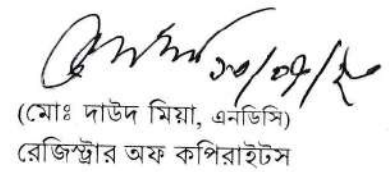 ১০/০৭/২০
(মোঃ দাউদ মিয়া, এনডিসি)
রেজিস্ট্রার অফ কপিরাইটস